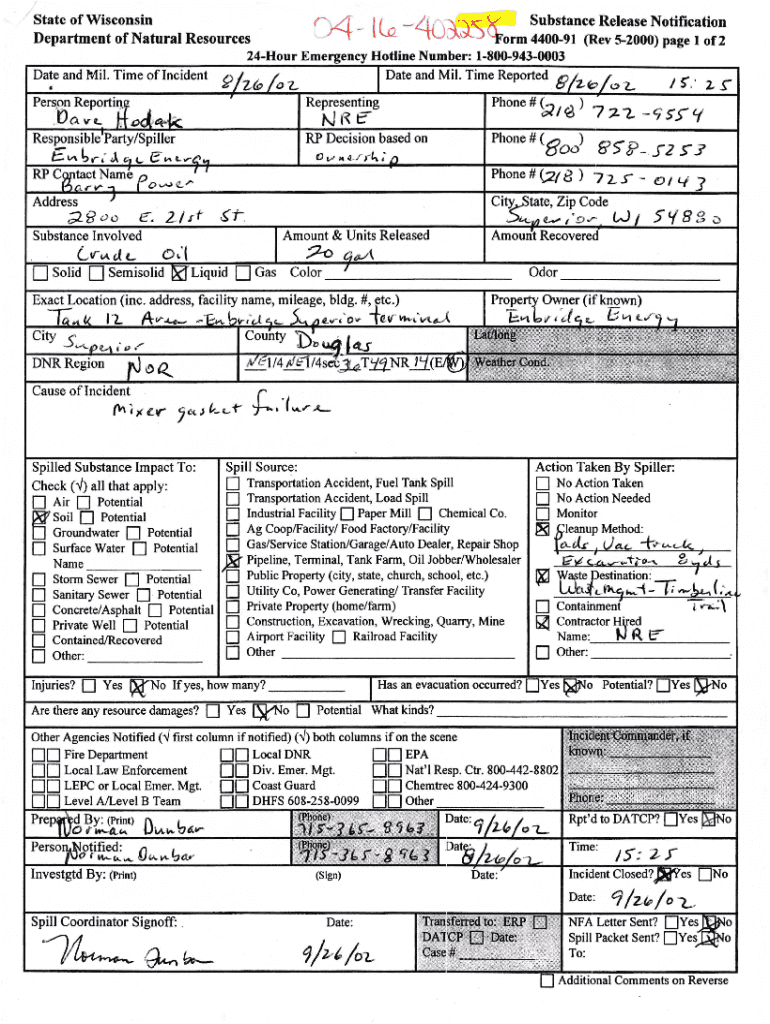 State of Wisconsin 04-16-402258 Substance Release Notification
Department of Natural Resources Form 4400-91 (Rev 5-2000) page 1 of 2
24-Hour Emergency Hotline Number: 1-800-943-0003
Date and Mil. Time of Incident 8/26/02 Date and Mil. Time Reported 8/26/02 15:25
Person Reporting Representing Phone # (218) 722-9554
Dave Hodak NRE
Responsible Party/Spiller RP Decision based on Phone # (800) 858-5253
Enbridge Energy ownership
RP Contact Name Phone # (218) 725-0143
Barry Power
Address City, State, Zip Code
2800 E. 21st St. Superior, WI 54880
Substance Involved Amount & Units Released Amount Recovered
Crude Oil 20 gal
Solid Semisolid Liquid Gas Color Odor
Exact Location (inc. address, facility name, mileage, bldg. #, etc.) Property Owner (if known)
Tank 12 Area - Enbridge Superior terminal Enbridge Energy
City Superior County Douglas Lat/long
DNR Region NOR NE1/4 NE1/4sec 36 T49NR 14(E/W) Weather Cond.
Cause of Incident
Mixer gasket failure
Spilled Substance Impact To: Spill Source: Action Taken By Spiller:
Check (√) all that apply: Transportation Accident, Fuel Tank Spill No Action Taken
Air Potential Transportation Accident, Load Spill No Action Needed
Soil Potential Industrial Facility Paper Mill Chemical Co. Monitor
Groundwater Potential Ag Coop/Facility/ Food Factory/Facility Cleanup Method:
Surface Water Potential Gas/Service Station/Garage/Auto Dealer, Repair Shop Pads, Vac truck,
Name Pipeline, Terminal, Tank Farm, Oil Jobber/Wholesaler Excavation 8yds
Storm Sewer Potential Public Property (city, state, church, school, etc.) Waste Destination:
Sanitary Sewer Potential Utility Co, Power Generating/ Transfer Facility Waste Mgmt - Timberline Trail
Concrete/Asphalt Potential Private Property (home/farm) Containment
Private Well Potential Construction, Excavation, Wrecking, Quarry, Mine Contractor Hired
Contained/Recovered Airport Facility Railroad Facility Name: NRE
Other: Other Other:
Injuries? Yes No If yes, how many? Has an evacuation occurred? Yes No Potential? Yes No
Are there any resource damages? Yes No Potential What kinds?
Other Agencies Notified (√ first column if notified) (√) both columns if on the scene Incident Commander, if
Fire Department Local DNR EPA known:
Local Law Enforcement Div. Emer. Mgt. Nat'l Resp. Ctr. 800-442-8802
LEPC or Local Emer. Mgt. Coast Guard Chemtrec 800-424-9300
Level A/Level B Team DHFS 608-258-0099 Other Phone:
Prepared By: (Print) (Phone) Date: 9/26/02 Rpt'd to DATCP? Yes No
Norman Dunbar 715-365-8963
Person Notified: (Phone) Date: 8/26/02 Time:
Norman Dunbar 715-365-8963 15:25
Investgtd By: (Print) (Sign) Date: Incident Closed? Yes No
Date: 9/26/02
Spill Coordinator Signoff: Date: Transferred to: ERP NFA Letter Sent? Yes No
Norman Dunbar 9/26/02 DATCP Date: Spill Packet Sent? Yes No
Case # To:
Additional Comments on Reverse